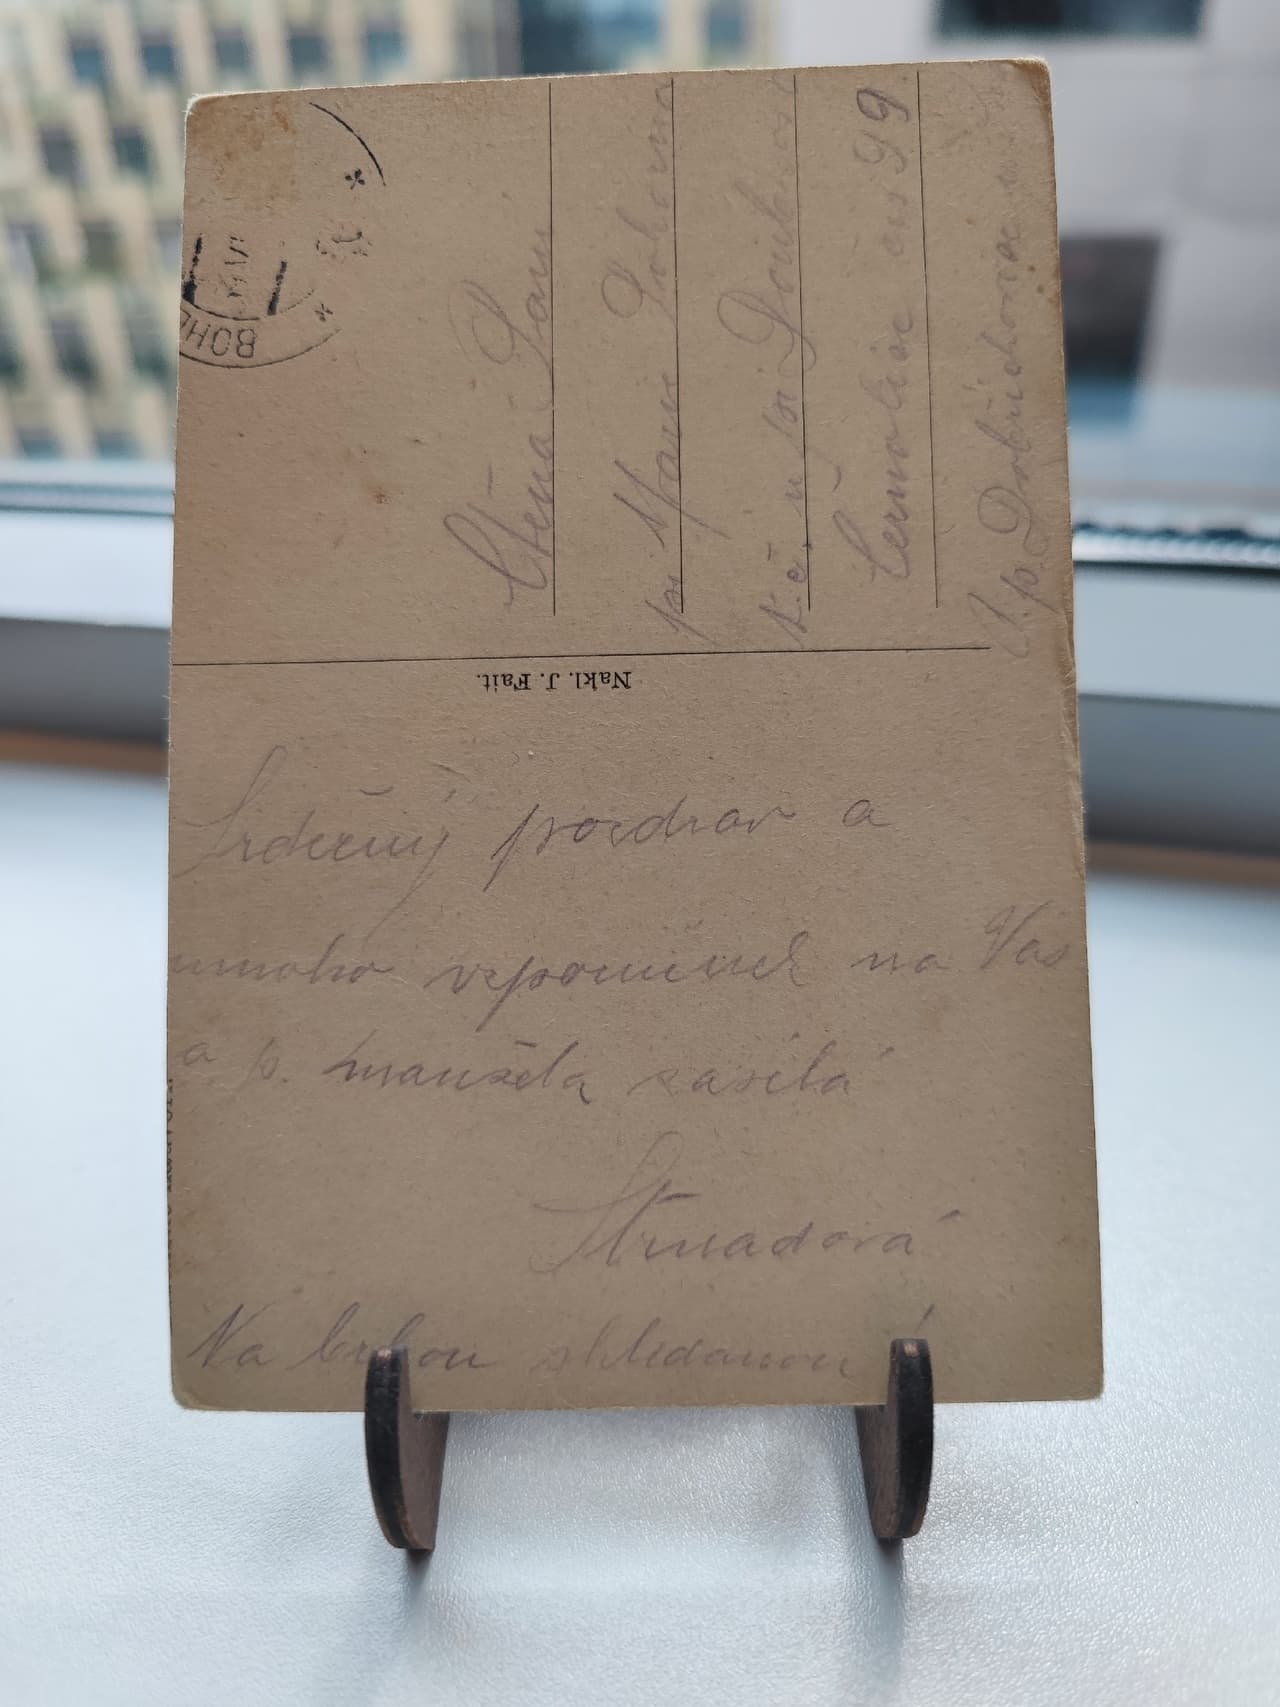 BOH
Ctěná Paní
pí. Marie
t. č. u pí
Černolice čís 99
p. Dobřichovice
Nakl. J. Fait.
Srdečný pozdrav a
mnoho vzpomínek na Vás
a p. manžela zasílá
Strnadová
Na brzkou shledanou